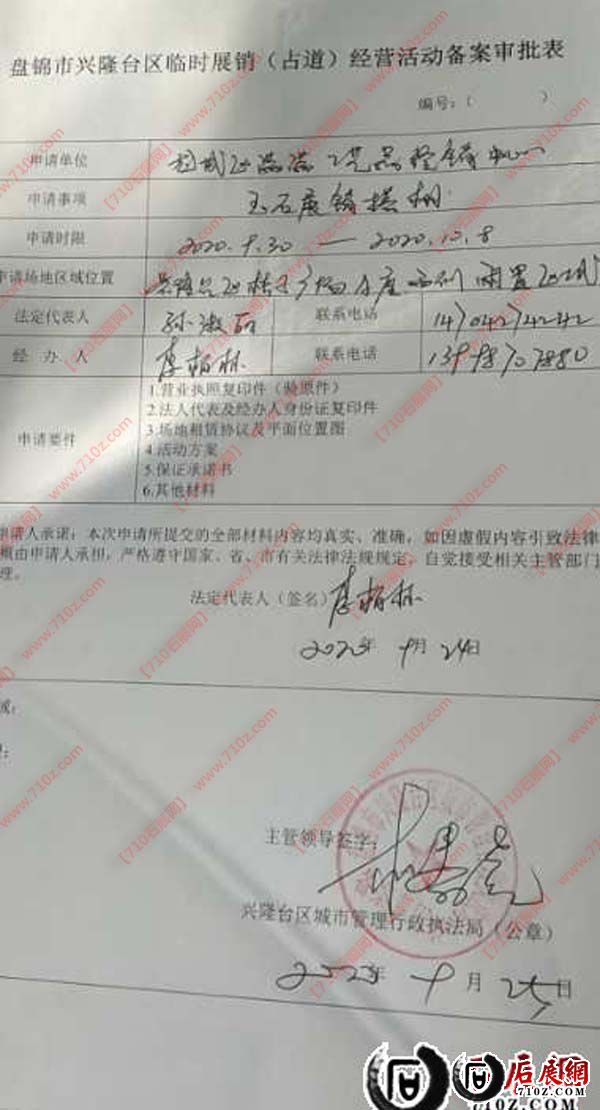 盘锦市兴隆台区临时展销（占道）经营活动备案审批表
编号：（ ）
申请单位
申请事项 玉石展销搭棚
申请时限 2020.9.30 — 2020.10.8
申请场地区域位置
法定代表人 孙淑丽 联系电话 14704274242
经 办 人 李柏林 联系电话
申请要件
1.营业执照复印件（验原件）
2.法人代表及经办人身份证复印件
3.场地租赁协议及平面位置图
4.活动方案
5.保证承诺书
6.其他材料
申请人承诺：本次申请所提交的全部材料内容均真实、准确，如因虚假内容引致法律
概由申请人承担，严格遵守国家、省、市有关法律法规规定，自觉接受相关主管部门
理。
法定代表人（签名） 李柏林
2020年 9月 24日
主管领导签字：
兴隆台区城市管理行政执法局（公章）
2020年 9月 25日
【710石展网】 www.710z.com
石展网
710Z.COM